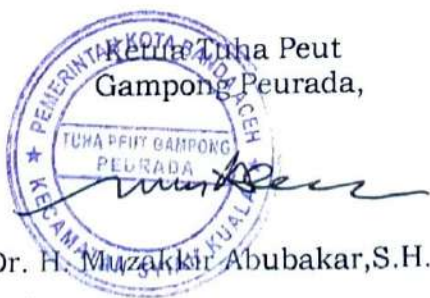 Ketua Tuha Peut
Gampong Peurada,
PEMERINTAH KOTA BANDA ACEH
TUHA PEUT GAMPONG
PEURADA
KECAMATAN SYIAH KUALA
Dr. H. Muzakkir Abubakar,S.H.